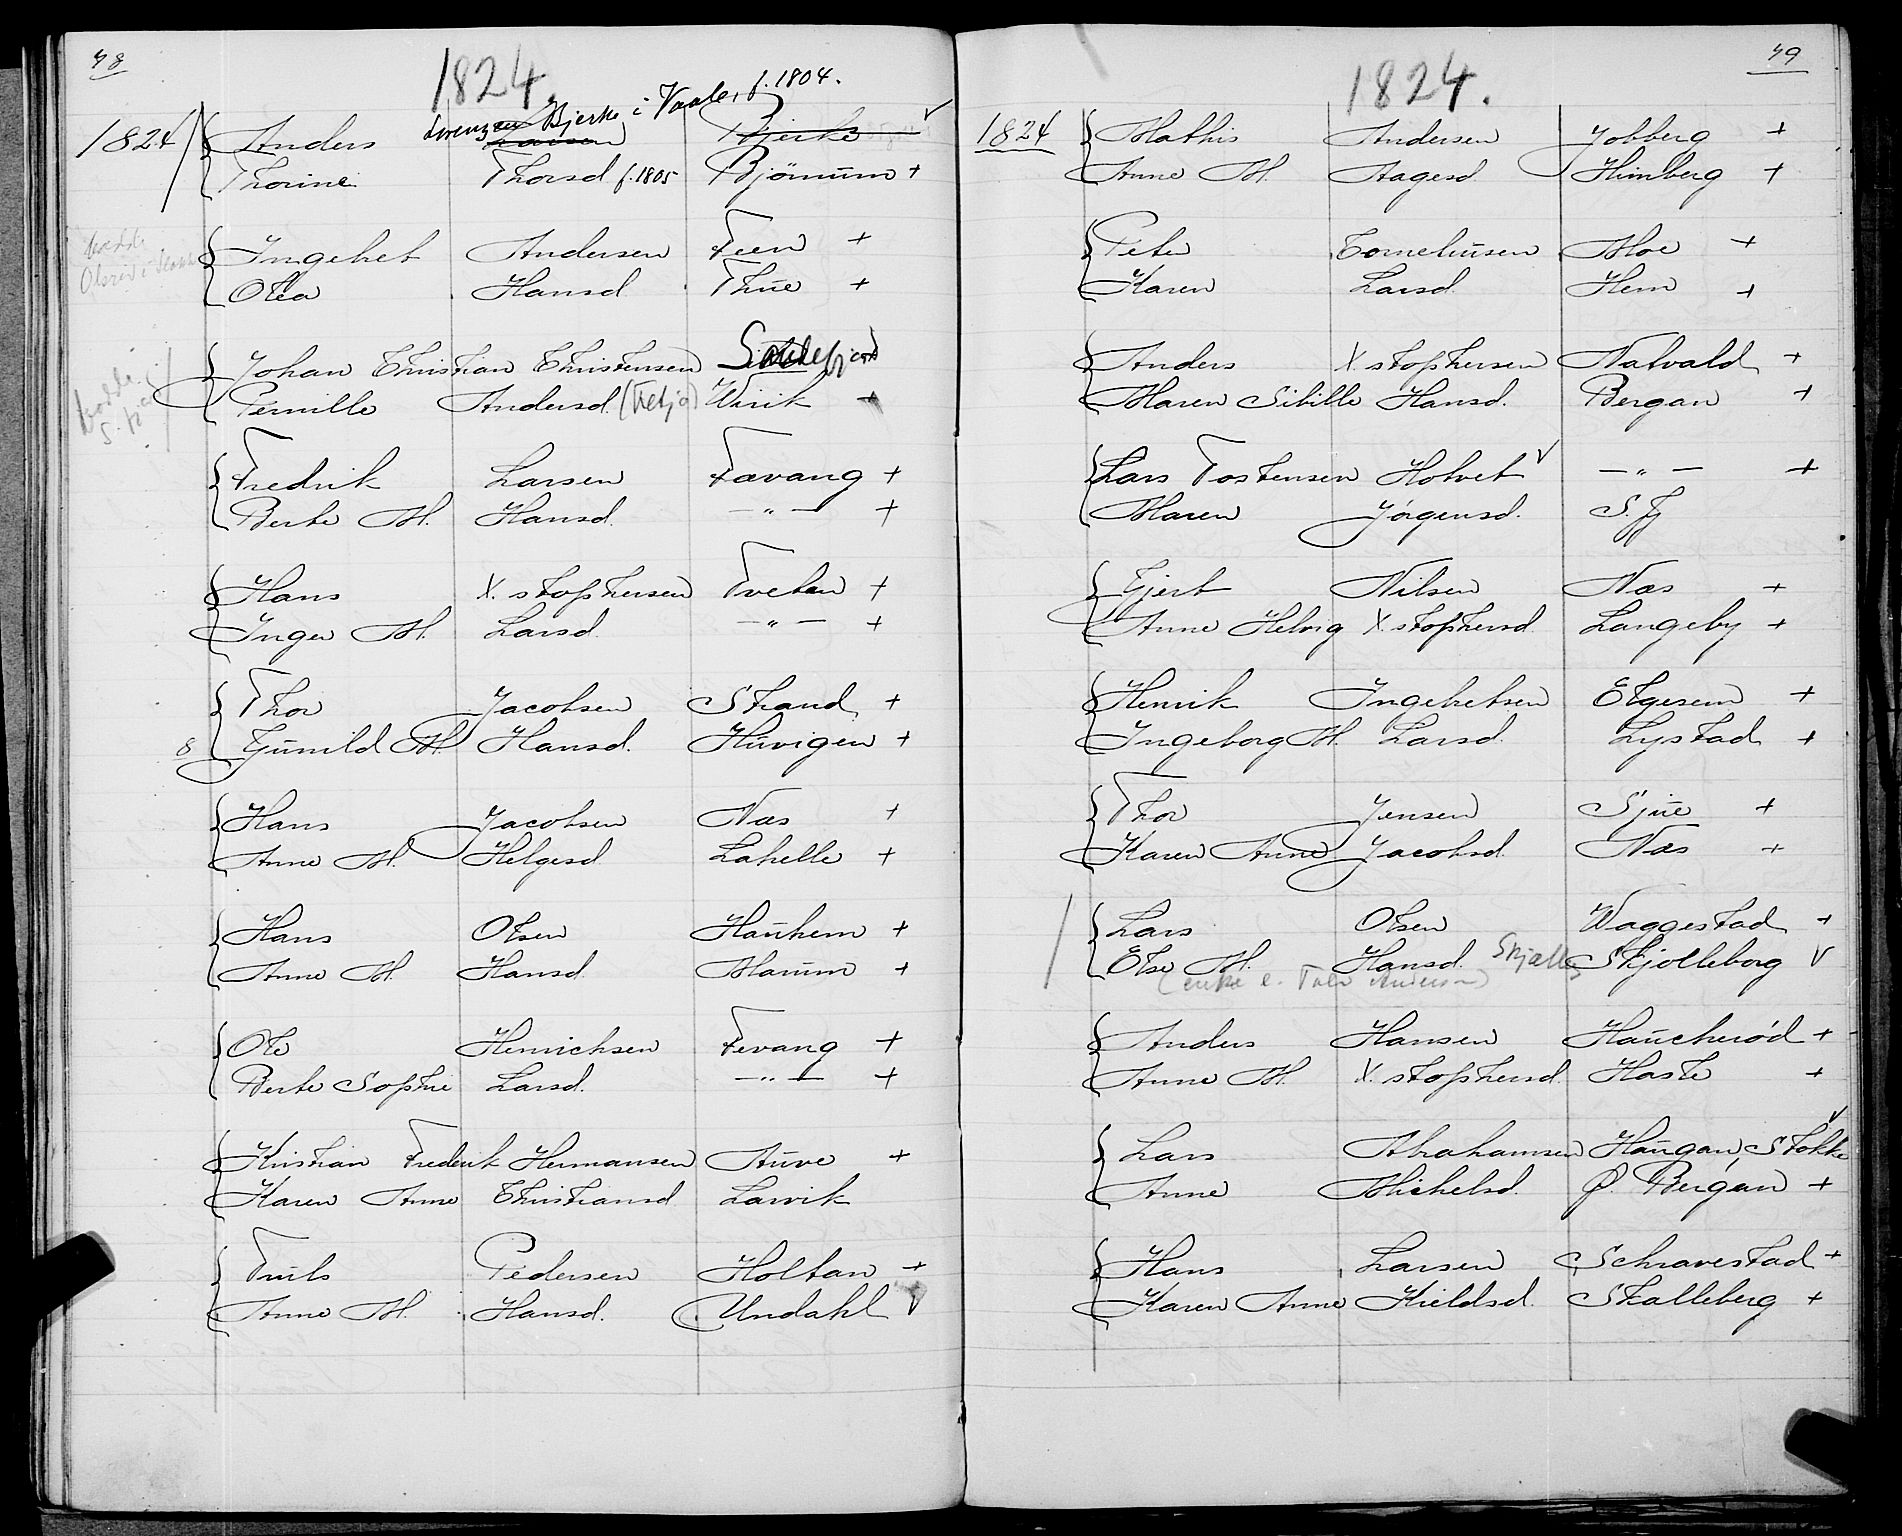 48
1824.
Lorenzen Bjerke i Vaale, f. 1804.
1824 Anders Larsen Bjerke √
Thorine Thorsd f. 1805 Bjørnum +
Ingebret Andersen Feen +
Olea Hansd. Thue +
Johan Christian Christensen Sandefjord
Pernille Andersd. (Fetja) Virik +
Fredrik Larsen Favang +
Berte M. Hansd. — „ — +
Hans X. stophersen Tveten +
Inger M. Larsd. — „ — +
Thor Jacobsen Strand +
8 Gunild M. Hansd. Huvigen +
Hans Jacobsen Næs +
Anne M. Helgesd. Lahelle +
Hans Olsen Haukem +
Anne M. Hansd. Marum +
Ole Henrichsen Fevang +
Berte Sophie Larsd. — „ — +
Kristian Frederik Hermansen Auve +
Karen Anne Christiansd. Larvik
Truls Pedersen Holtan +
Anne M. Hansd. Undahl V
49
1824.
1824 Mathis Andersen Jobberg +
Anne M. Aagesd. Himberg +
Peter Corneliusen Moe +
Karen Larsd. Hem +
Anders X stophersen Natvald +
Maren Sibille Hansd. Bergan +
Lars Tostensen Holvet √ — „ — +
Maren Jörgensd. S. Fj
Gjert Nilsen Næs +
Anne Helvig X. stophersd. Langeby +
Henrik Ingebretsen Elgesem +
Ingeborg M. Larsd. Lystad +
Thor Jensen Sjue +
Karen Anne Jacobsd. Næs +
Lars Olsen Waggestad +
Else M. Hansd. Skjolleborg V
(enke e. Tolv Anderson)
Anders Hansen Haucheröd +
Anne M. X. stophersd. Hasle +
Lars Abrahamsen Haugan, Stokke √
Anne Michelsd. Ø. Bergan +
Hans Larsen Schravestad +
Karen Anne Kieldsd. Skalleberg +